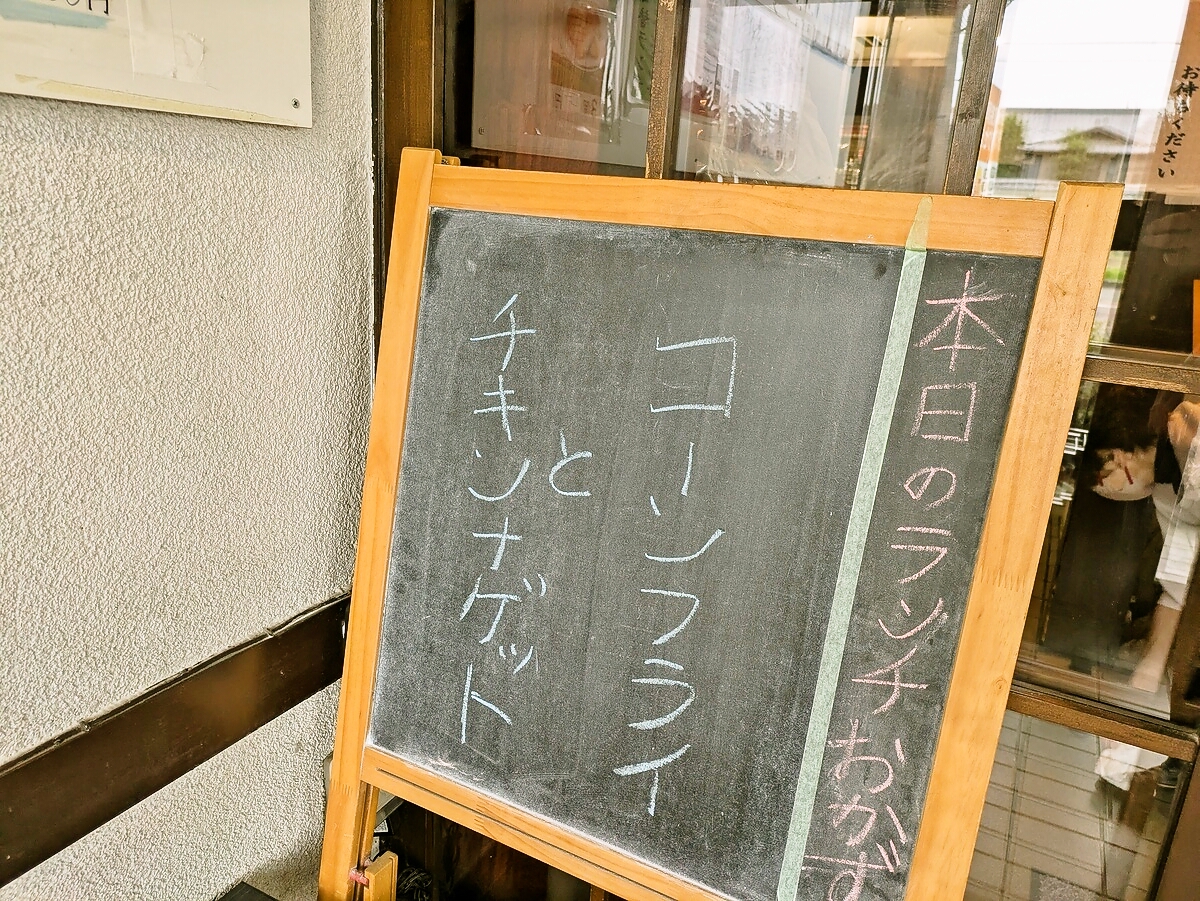 本日のランチおかず
コーンフライ
と
チキンナゲット
お待ちください
円